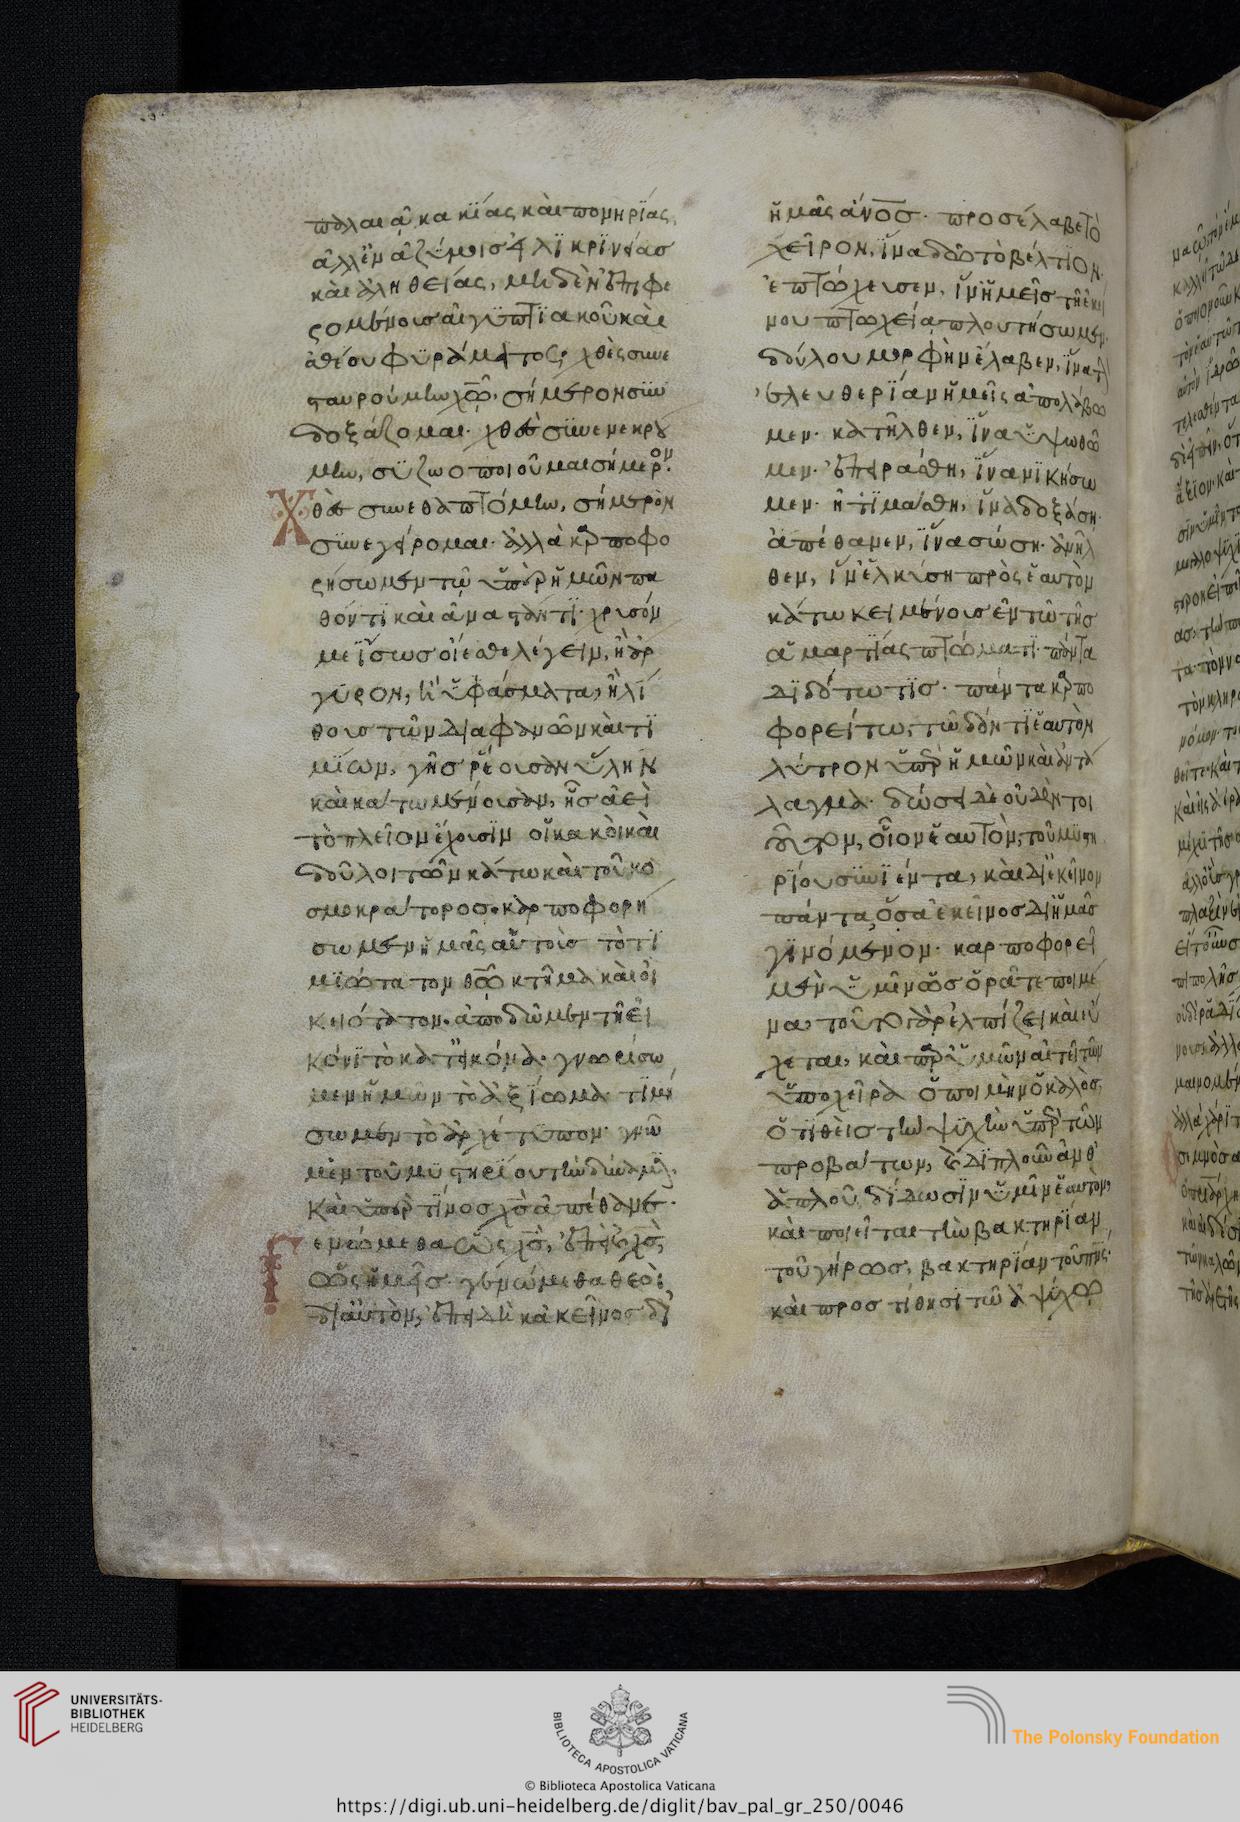 παλαιᾶ κακίας καὶ πονηρίας,
ἀλλ' ἐν ἀζύμοις εἰλικρινείας
καὶ ἀληθείας, μηδὲν ἐπιφε
ρομένοις αἰγυπτϊακοῦ καὶ
ἀθέου φυράματος· χθὲς συνε
σταυρούμην χω, σήμερον συν
δοξάζομαι· χθὲς συνενεκρού
μην, συζωοποιοῦμαι σήμερον·
Χθὲς συνεθαπτόμην, σήμερον
συνεγείρομαι· ἀλλὰ καρποφο
ρήσωμεν τῶ ὑπὲρ ἡμῶν πα
θόντι καὶ ἀναστάντι· χρυσόν
με ἴσως οἴεσθε λέγειν, ἢ ἄρ
γυρον, ἢ ὑφάσματα, ἢ λί
θους τῶν διαφανῶν καὶ τι
μίων, γῆς ῥέουσαν ὕλην
καὶ κάτω μένουσαν, ἧς ἀεὶ
τὸ πλεῖον ἔχουσιν οἱ κακοὶ καὶ
δοῦλοι τῶν κάτω καὶ τοῦ κο
σμοκράτορος· καρποφορή
σωμεν ἡμᾶς αὐτοὺς τὸ τι
μιώτατον θω κτῆμα καὶ οἰ
κειότατον· ἀποδῶμεν τῆ εἰ
κόνι τὸ κατ' εἰκόνα· γνωρίσω
μεν ἡμῶν τὸ ἀξίωμα· τιμή
σωμεν τὸ ἀρχέτυπον· γνῶ
μεν τοῦ μυστηρίου τὴν δύναμιν,
καὶ ὑπὲρ τίνος χς ἀπέθανεν·
Γενώμεθα ὡς χς, ἐπεὶ καὶ χς,
ὡς ἡμεῖς· γενώμεθα θεοὶ
δι' αὐτὸν, ἐπειδὴ κἀκεῖνος δι'
ἡμᾶς ἄνος· προσέλαβε τὸ
χεῖρον, ἵνα δῶ τὸ βέλτιον·
ἐπτώχευσεν, ἵν' ἡμεῖς τῆ ἐκεί
νου πτωχεία πλουτήσωμεν·
δούλου μορφὴν ἔλαβεν, ἵνα τὴν
ἐλευθερίαν ἡμεῖς ἀπολάβω
μεν· κατῆλθεν, ἵνα ὑψωθῶ
μεν· ἐπειράσθη, ἵνα νικήσω
μεν· ἠτιμάσθη, ἵνα δοξάση·
ἀπέθανεν, ἵνα σώση· ἀνῆλ
θεν, ἵν' ἑλκύση πρὸς ἑαυτὸν
κάτω κειμένους ἐν τῶ τῆς
ἁμαρτίας πτώματι· πάντα
διδότω τις· πάντα καρπο
φορείτω, τῶ δόντι ἑαυτὸν
λύτρον ὑπὲρ ἡμῶν καὶ ἀντά
λαγμα· δώσει δὲ οὐδὲν τοι
οῦτον, οἷον ἑαυτὸν, τοῦ μυστη
ρίου συνιέντα, καὶ δι' ἐκεῖνον
πάντα, ὅσα ἐκεῖνος δι' ἡμᾶς
γινόμενον· καρποφορεῖ
μὲν ὑμῖν ὡς ὁρᾶτε ποιμέ
να· τοῦτο γὰρ ἐλπίζει καὶ εὔ
χεται, καὶ παρ' ὑμῶν αἰτεῖ τῶν
ὑπὸ χεῖρα ὁ ποιμὴν ὁ καλὸς,
ὁ τιθεὶς τὴν ψυχὴν ὑπὲρ τῶν
προβάτων, καὶ διπλοῦν ἀνθ'
ἁπλοῦ, δίδωσιν ὑμῖν ἑαυτὸν,
καὶ ποιεῖται τὴν βακτηρίαν
τοῦ γήρως, βακτηρίαν τοῦ πνς·
καὶ προστίθησι τῶ ἀψύχω
UNIVERSITÄTS-
BIBLIOTHEK
HEIDELBERG
BIBLIOTECA APOSTOLICA VATICANA
© Biblioteca Apostolica Vaticana
The Polonsky Foundation
https://digi.ub.uni-heidelberg.de/diglit/bav_pal_gr_250/0046